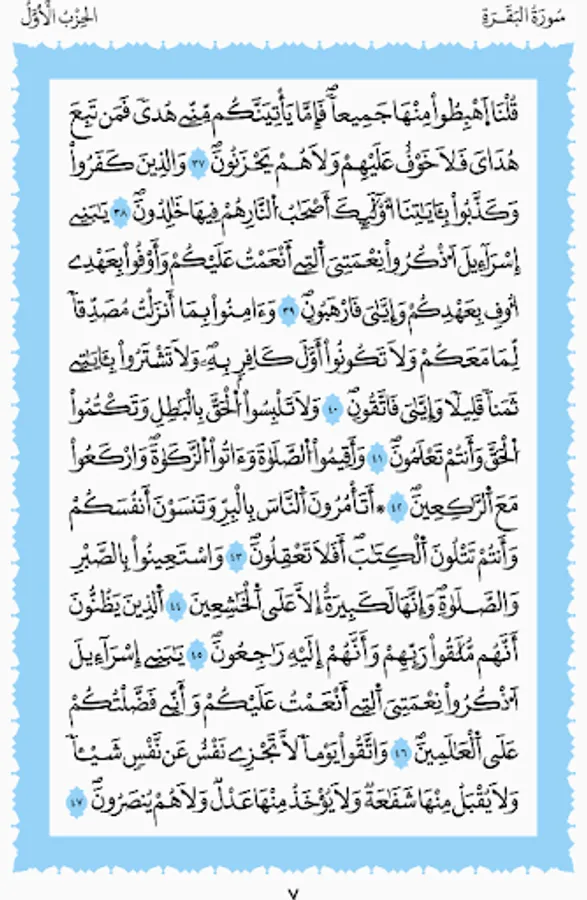 سُورَةُ الْبَقَرَةِ الْحِزْبُ الْأَوَّلُ
قُلْنَا اَهْبِطُواْ مِنْهَا جَمِيعاٗۖ فَإِمَّا يَأْتِيَنَّكُم مِّنِّے هُديٗ فَمَن تَبِعَ
هُدَايَ فَلَا خَوْفٌ عَلَيْهِمْ وَلَا هُمْ يَحْزَنُونَۖ ٣٧ وَالذِينَ كَفَرُواْ
وَكَذَّبُواْ بِـَٔايَٰتِنَا أُوْلَٰٓئِكَ أَصْحَٰبُ اُلنّ۪ارِ هُمْ فِيهَا خَٰلِدُونَۖ ٣٨ يَٰبَنِےٓ
إِسْرَآءِيلَ اَذْكُرُواْ نِعْمَتِيَ اَلتِےٓ أَنْعَمْتُ عَلَيْكُمْ وَأَوْفُواْ بِعَهْدِےٓ
أُوفِ بِعَهْدِكُمْ وَإِيَّٰيَ فَارْهَبُونِۖ ٣٩ وَءَامِنُواْ بِمَآ أَنزَلْتُ مُصَدِّقاٗ
لِّمَا مَعَكُمْ وَلَا تَكُونُوٓاْ أَوَّلَ كَافِرِۢ بِهِۦۖ وَلَا تَشْتَرُواْ بِـَٔايَٰتِے
ثَمَناٗ قَلِيلاٗ وَإِيَّٰيَ فَاتَّقُونِۖ ٤٠ وَلَا تَلْبِسُواْ اُلْحَقَّ بِالْبَٰطِلِ وَتَكْتُمُواْ
اُلْحَقَّ وَأَنتُمْ تَعْلَمُونَۖ ٤١ وَأَقِيمُواْ اُلصَّلَوٰةَ وَءَاتُواْ اُلزَّكَوٰةَ وَارْكَعُواْ
مَعَ اَلرَّٰكِعِينَۖ ٤٢ ۞ أَتَأْمُرُونَ اَلنَّاسَ بِالْبِرِّ وَتَنسَوْنَ أَنفُسَكُمْ
وَأَنتُمْ تَتْلُونَ اَلْكِتَٰبَۖ أَفَلَا تَعْقِلُونَۖ ٤٣ وَاسْتَعِينُواْ بِالصَّبْرِ
وَالصَّلَوٰةِۖ وَإِنَّهَا لَكَبِيرَةٌ إِلَّا عَلَى اَلْخَٰشِعِينَ ٤٤ اَلذِينَ يَظُنُّونَ
أَنَّهُم مُّلَٰقُواْ رَبِّهِمْ وَأَنَّهُمْ إِلَيْهِ رَٰجِعُونَۖ ٤٥ يَٰبَنِےٓ إِسْرَآءِيلَ
اَذْكُرُواْ نِعْمَتِيَ اَلتِےٓ أَنْعَمْتُ عَلَيْكُمْ وَأَنِّے فَضَّلْتُكُمْ
عَلَى اَلْعَٰلَمِينَۖ ٤٦ وَاتَّقُواْ يَوْماٗ لَّا تَجْزِے نَفْسٌ عَن نَّفْسٖ شَيْـٔاٗ
وَلَا يُقْبَلُ مِنْهَا شَفَٰعَةٞ وَلَا يُؤْخَذُ مِنْهَا عَدْلٞ وَلَا هُمْ يُنصَرُونَۖ ٤٧
٧